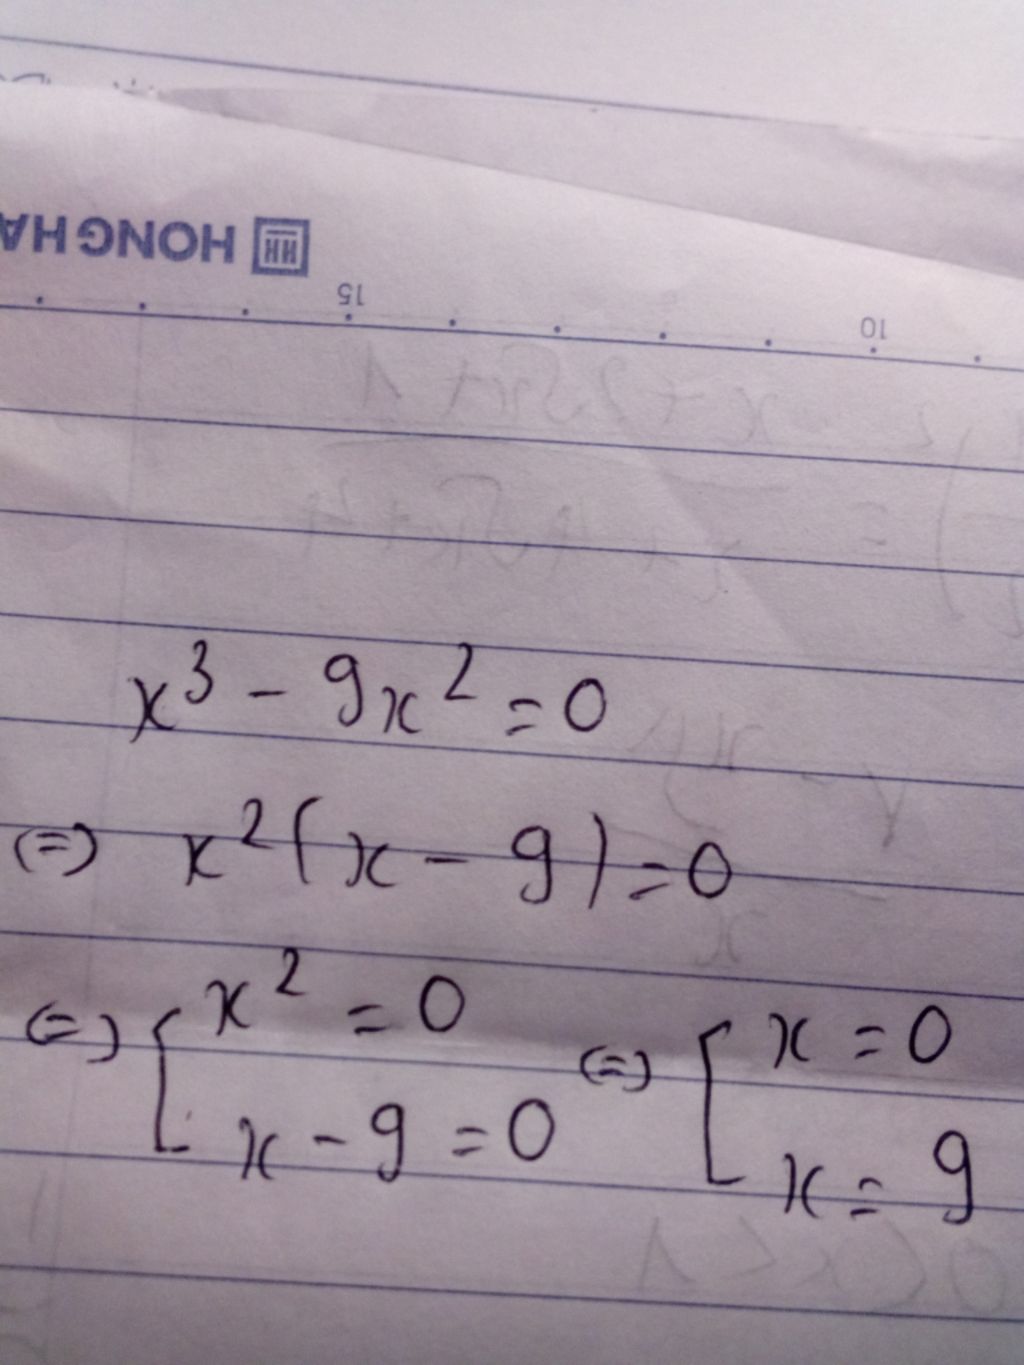 HONG HA
15 10
x³ - 9x² = 0
(=) x²(x - 9) = 0
(=) [ x² = 0 (=) [ x = 0
x - 9 = 0 x = 9